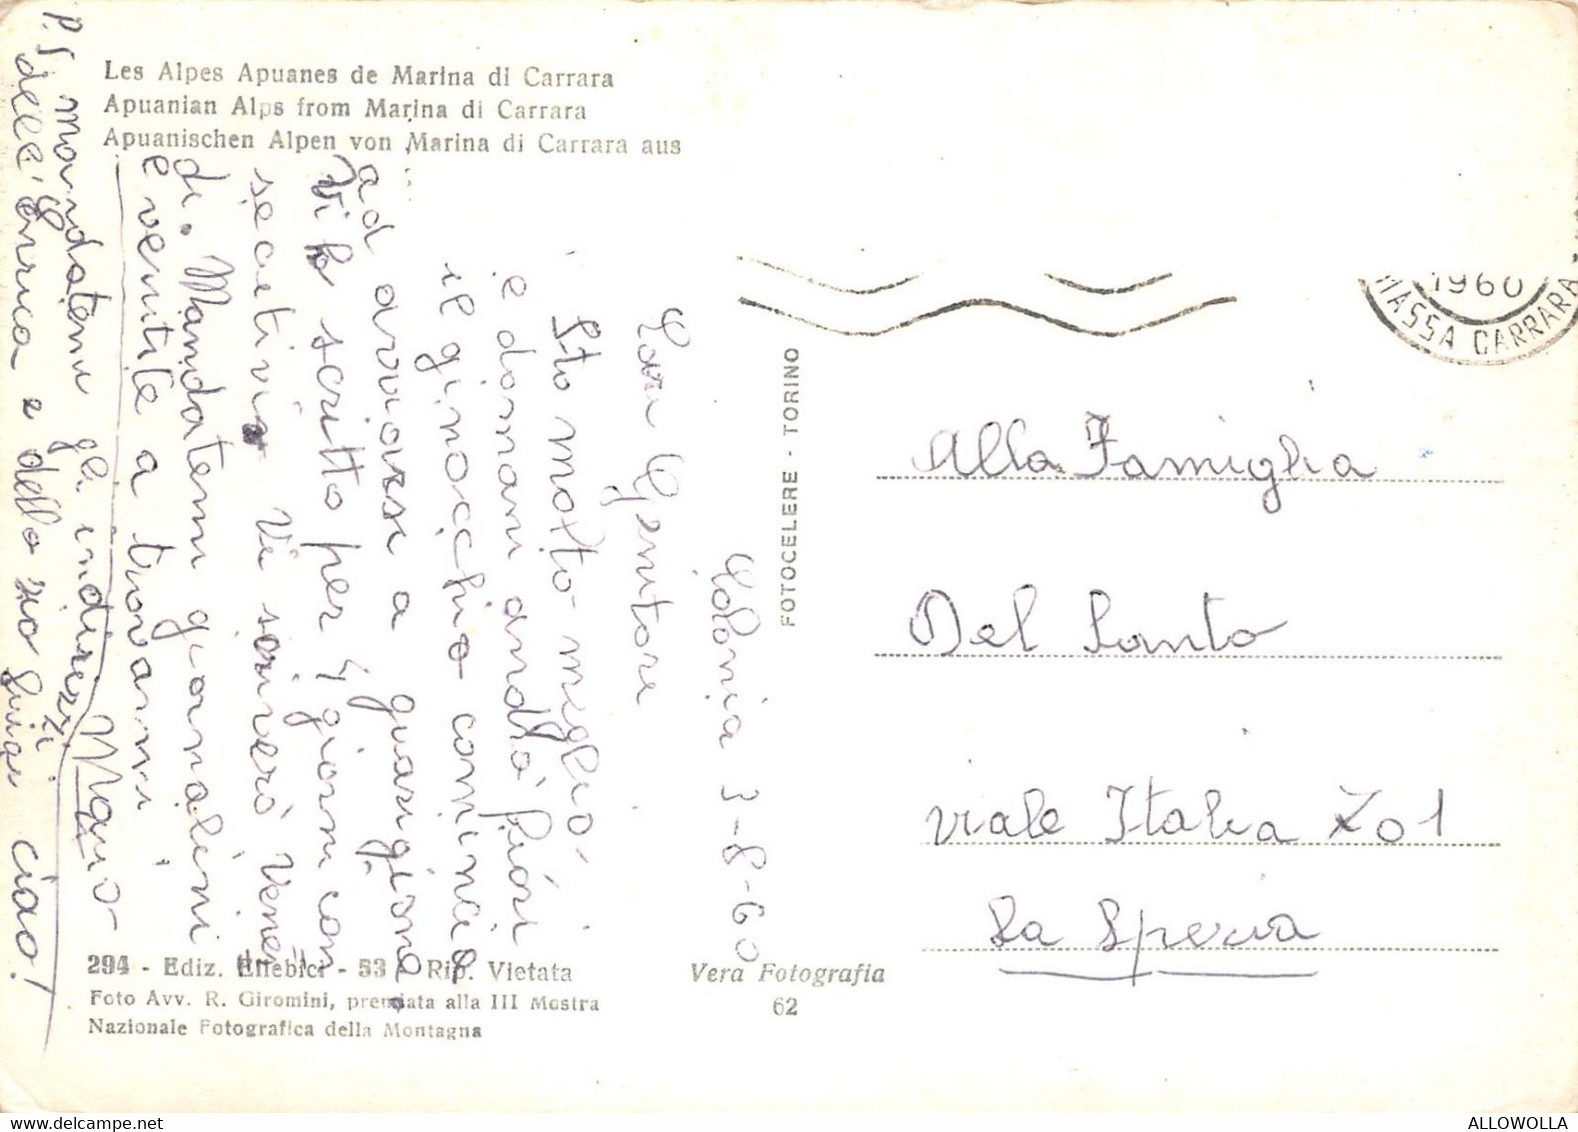 Les Alpes Apuanes de Marina di Carrara
Apuanian Alps from Marina di Carrara
Apuanischen Alpen von Marina di Carrara aus
Colonia 3-8-60
Cari Genitori
Sto molto meglio
e domani andrò fuori
il ginocchio comincia
ad avviarsi a guarigione.
Vi ho scritto per 4 giorni con
secutivi. Vi scriverò vener
di. Mandatemi giornalini
e venite a trovarmi
Mario
P.S mandatemi gli indirizzi
dell'Enrica e dello zio Luigi ciao!
294 - Ediz. Effebici - 53 Rip. Vietata
Foto Avv. R. Giromini, premiata alla III Mostra
Nazionale Fotografica della Montagna
Vera Fotografia
62
FOTOCELERE - TORINO
1960
MASSA CARRARA
Alla Famiglia
Del Santo
viale Italia 701
La Spezia
ALLOWOLLA